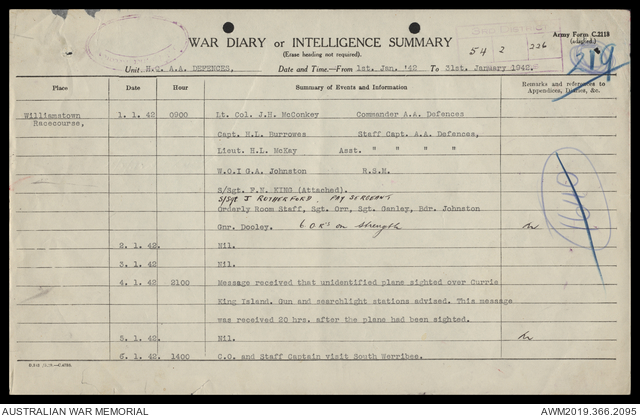 WAR DIARY or INTELLIGENCE SUMMARY
(Erase heading not required).
Army Form C.2118
(adapted.)
54 2 226
219
Unit H.Q. A.A. DEFENCES, Date and Time.—From 1st. Jan. '42 To 31st. January 1942.
Place Date Hour Summary of Events and Information Remarks and references to
Appendices, Diaries, &c.
Williamstown 1. 1. 42 0900 Lt. Col. J.H. McConkey Commander A.A. Defences
Racecourse,
Capt. H.L. Burrowes Staff Capt. A.A. Defences,
Lieut. H.L. McKay Asst. " " " "
W.O.I G.A. Johnston R.S.M.
S/Sgt. F.N. KING (Attached).
S/Sgt J RUTHERFORD. PAY SERGEANT
Orderly Room Staff, Sgt. Orr, Sgt. Ganley, Bdr. Johnston
Gnr. Dooley. 6 O.R's on strength
2. 1. 42. Nil.
3. 1. 42 Nil.
4. 1. 42 2100 Message received that unidentified planes sighted over Currie
King Island. Gun and searchlight stations advised. This message
was received 20 hrs. after the planes had been sighted.
5. 1. 42. Nil.
6. 1. 42. 1400 C.O. and Staff Captain visit South Werribee.
AUSTRALIAN WAR MEMORIAL AWM2019.366.2095